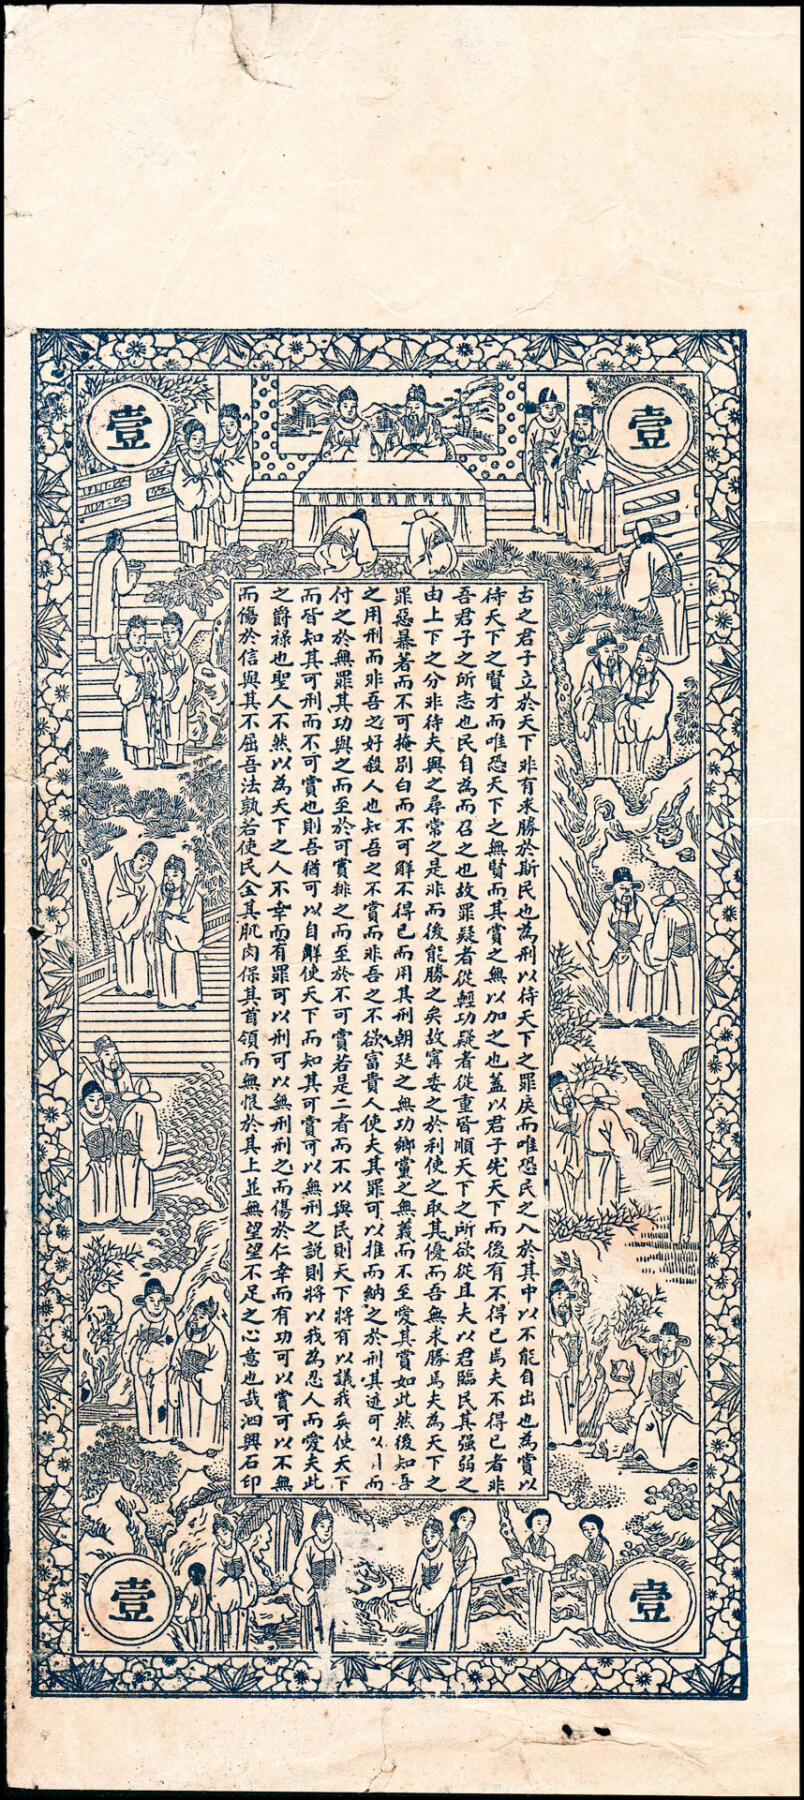 壹
壹
古之君子立於天下非有求勝於斯民也為刑以待天下之罪戾而唯恐民之入於其中以不能自出也為賞以
待天下之賢才而唯恐天下之無賢而其賞之無以加之也蓋以君子先天下而後有不得已焉夫不得已者非
吾君子之所志也民自為而召之也故罪疑者從輕功疑者從重皆順天下之所欲從且夫以君臨民其強弱之
由上下之分非待夫與之尋常之是非而後能勝之矣故寧委之於利使之取其優而吾無求勝焉夫為天下之
罪惡暴著而不可掩別白而不可解不得已而用其刑朝廷之無功鄉黨之無義而不至愛其賞如此然後知吾
之用刑而非吾之好殺人也知吾之不賞而非吾之不欲富貴人使夫其罪可以推而納之於刑其迹可而
付之於無罪其功與之而至於可賞排之而至於不可賞若是二者而不以與民則天下將有以議我矣使天下
而皆知其可刑而不可賞也則吾猶可以自解使天下而知其可賞可以無刑之説則將以我為忍人而愛夫此
之爵祿也聖人不然以為天下之人不幸而有罪可以刑可以無刑刑之而傷於仁幸而有功可以賞可以不無
而傷於信與其不屈吾法孰若使民全其肌肉保其首領而無恨於其上並無望望不足之心意也哉泗興石印
壹
壹